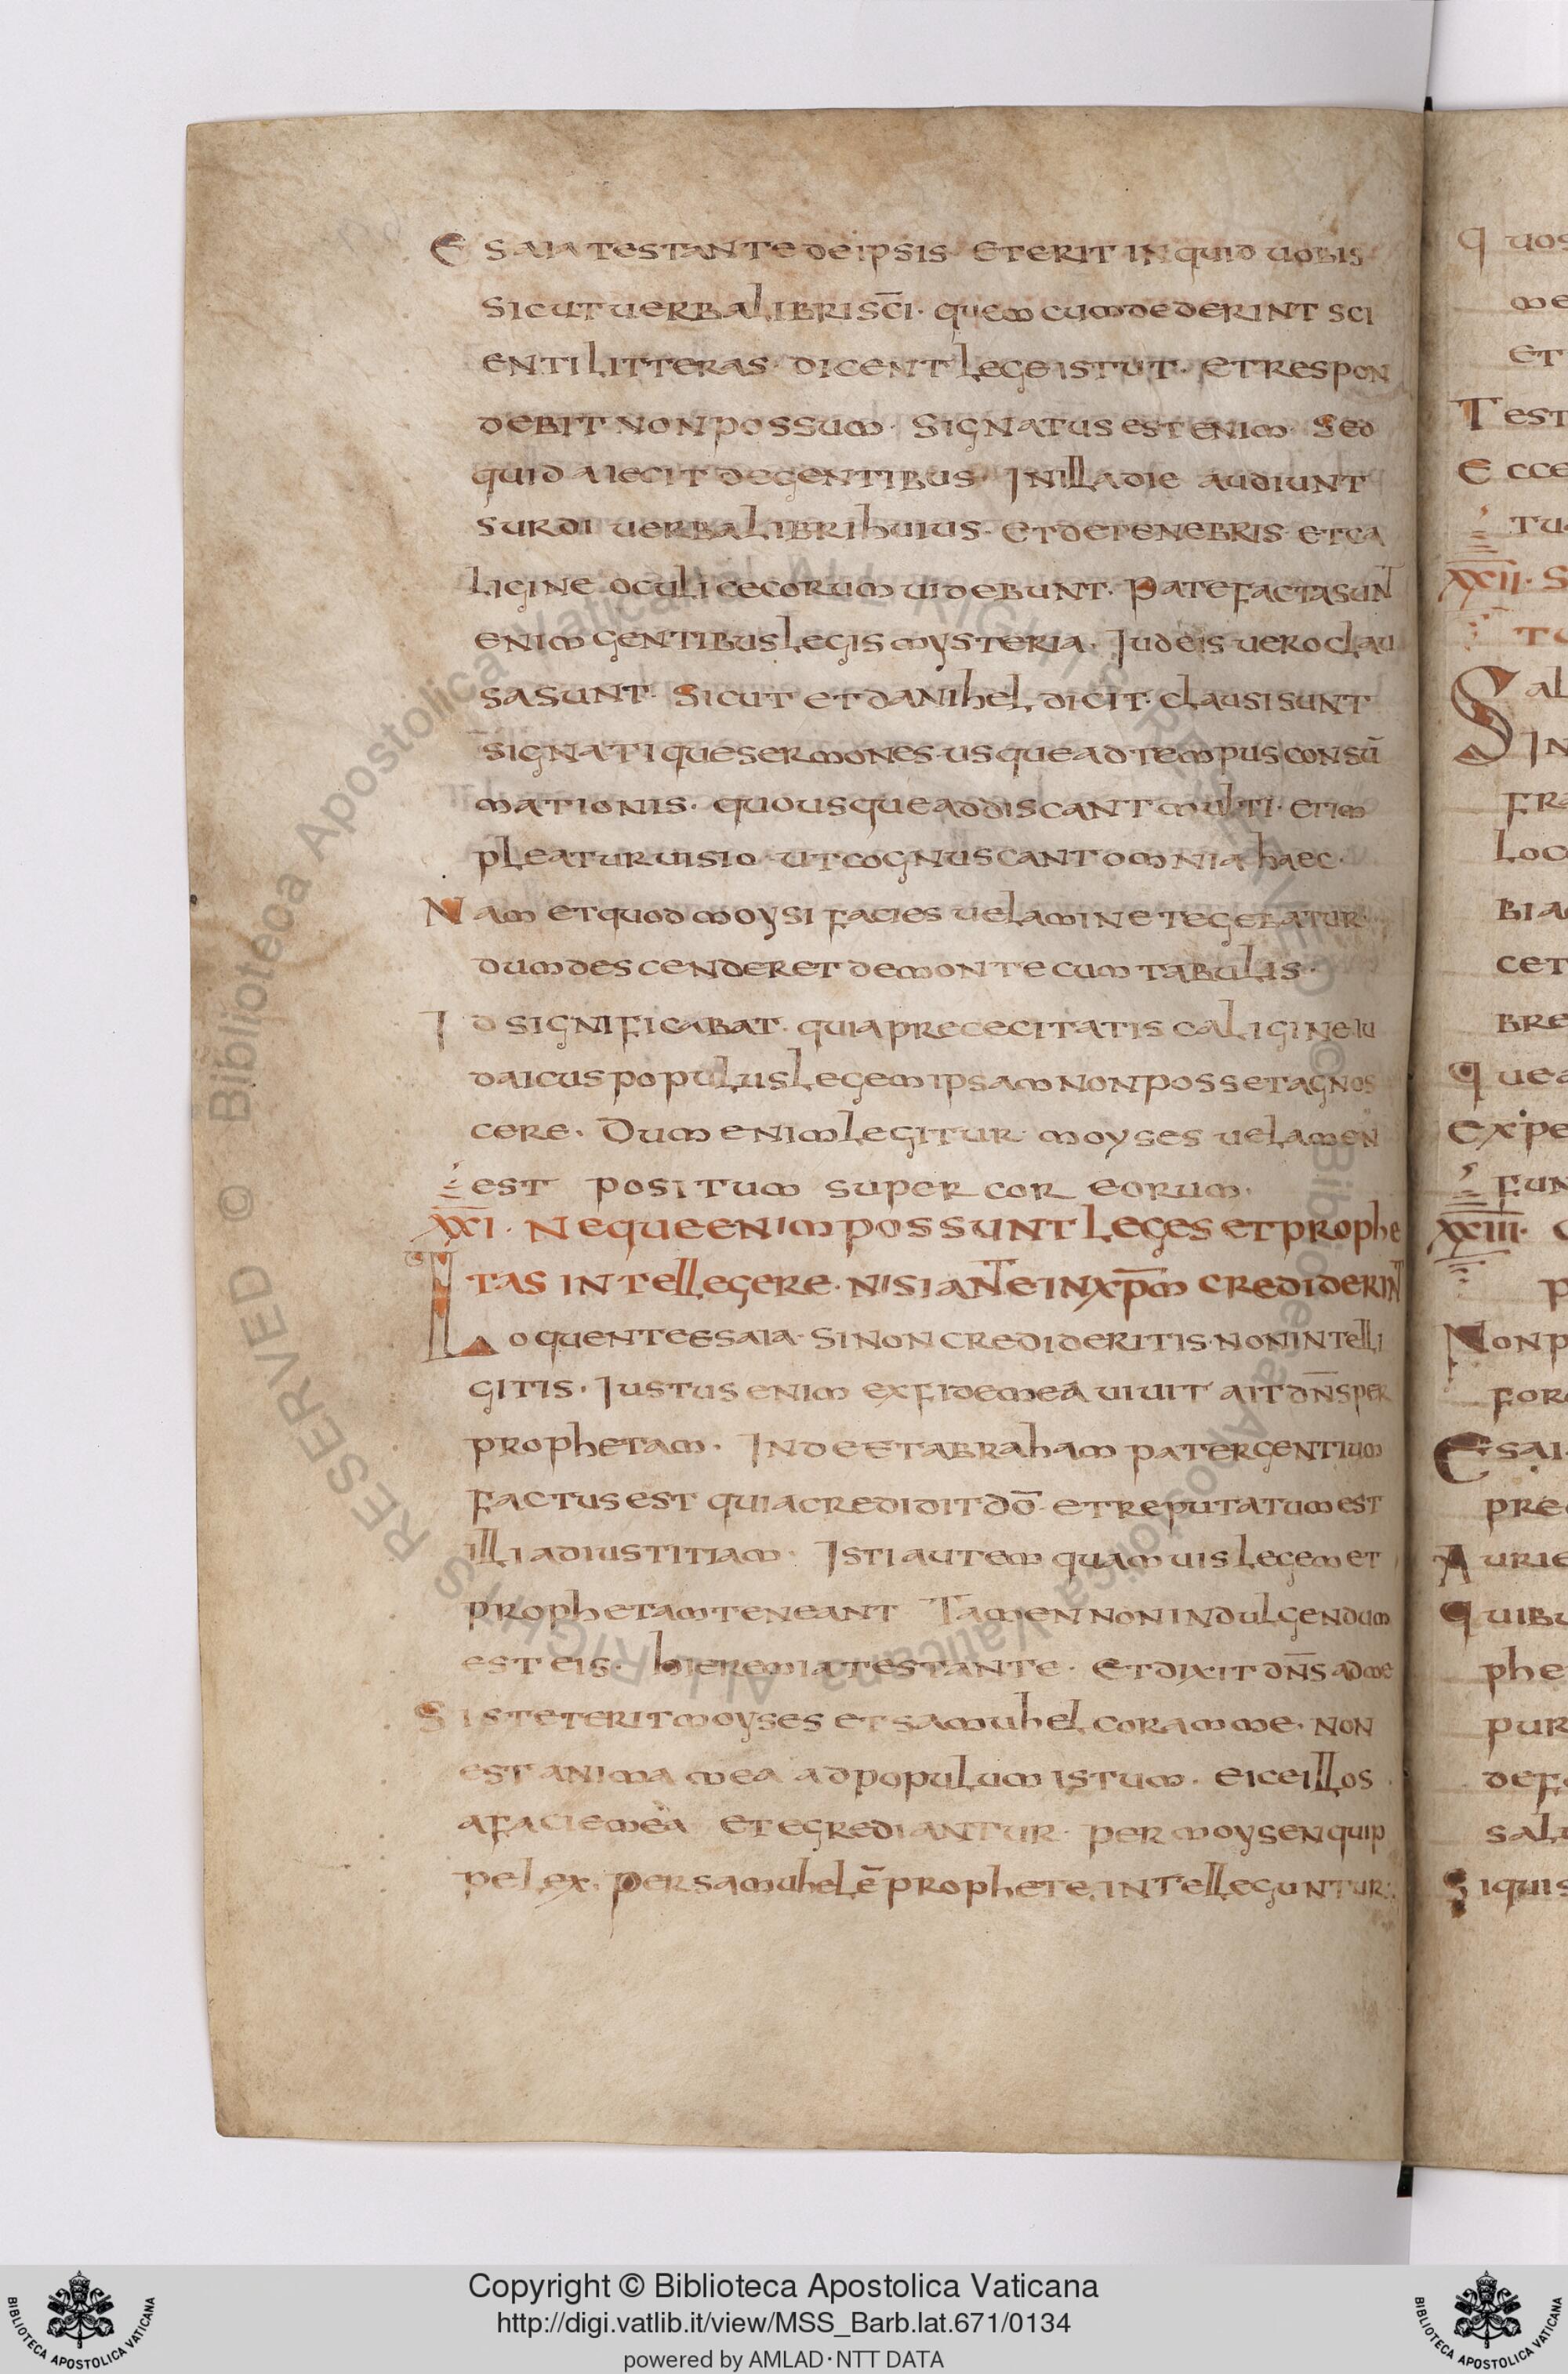 Esaia testante de ipsis. Et erit inquid uobis
sicut uerba libri sc̄i. quem cum dederint sci
enti litteras. dicent lege istut. et respon
debit non possum. Signatus est enim. Sed
quid aiecit de gentibus. In illa die audiunt
surdi uerba libri huius. et de tenebris et ca
ligine oculi cecorum uidebunt. Patefacta sunt
enim gentibus legis mysteria. Iudeis uero clau
sa sunt. Sicut et danihel dicit. clausi sunt
signatique sermones usque ad tempus consū
mationis. quousque addiscant multi. et im
pleatur uisio. ut cognuscant omnia haec.
Nam et quod moysi facies uelamine tegebatur.
dum descenderet de monte cum tabulis.
Id significabat. quia pre cecitatis caligine iu
daicus populus legem ipsam non posset agnos
cere. Dum enim legitur moyses uelamen
est positum super cor eorum.
XXI. Neque enim possunt leges et prophe
tas intellegere. nisi ante in xp̄m crediderint
Loquente esaia. Si non credideritis. non intelli
gitis. Iustus enim ex fide mea uiuit ait dn̄s per
prophetam. Inde et abraham pater gentium
factus est quia credidit dō. et reputatum est
illi ad iustitiam. Isti autem quamuis legem et
prophetam teneant Tamen non indulgendum
est eis. hieremia testante. Et dixit dn̄s ad me
Si steterit moyses et samuhel coram me. non
est anima mea ad populum istum. eice illos
a facie mea et egrediantur. per moysen quip
pe lex. per samuhelē prophete intelleguntur.
quos
me
et
Test
Ecce
tu
XXII. S
tu
Sal
In
fra
loc
bia
cet
bre
que
expe
fun
XXIII.
p
Non p
for
Esai
pre
Aurie
quibu
phe
pur
def
sal
Siquis
Copyright © Biblioteca Apostolica Vaticana
http://digi.vatlib.it/view/MSS_Barb.lat.671/0134
powered by AMLAD·NTT DATA
BIBLIOTECA APOSTOLICA VATICANA
BIBLIOTECA APOSTOLICA VATICANA
© Biblioteca Apostolica Vaticana ALL RIGHTS RESERVED
© Biblioteca Apostolica Vaticana ALL RIGHTS RESERVED